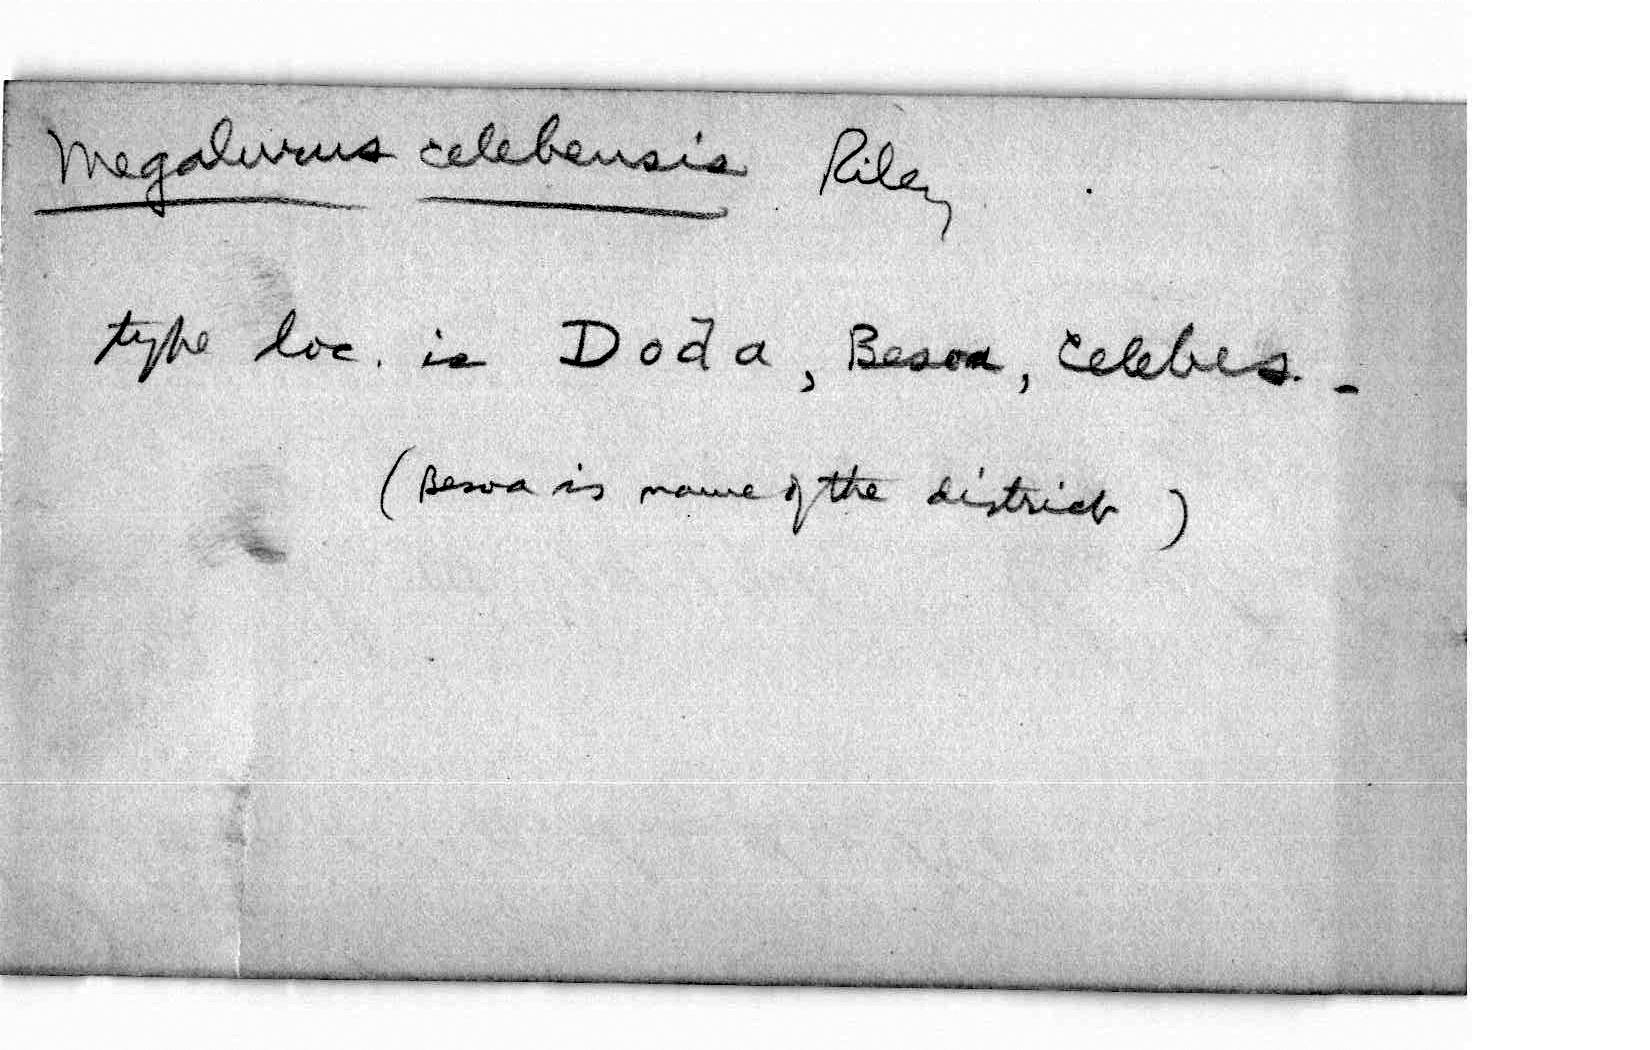 Megalurus celebensis Riley
type loc. is Doda, Besoa, Celebes. -
(Besoa is name of the district)